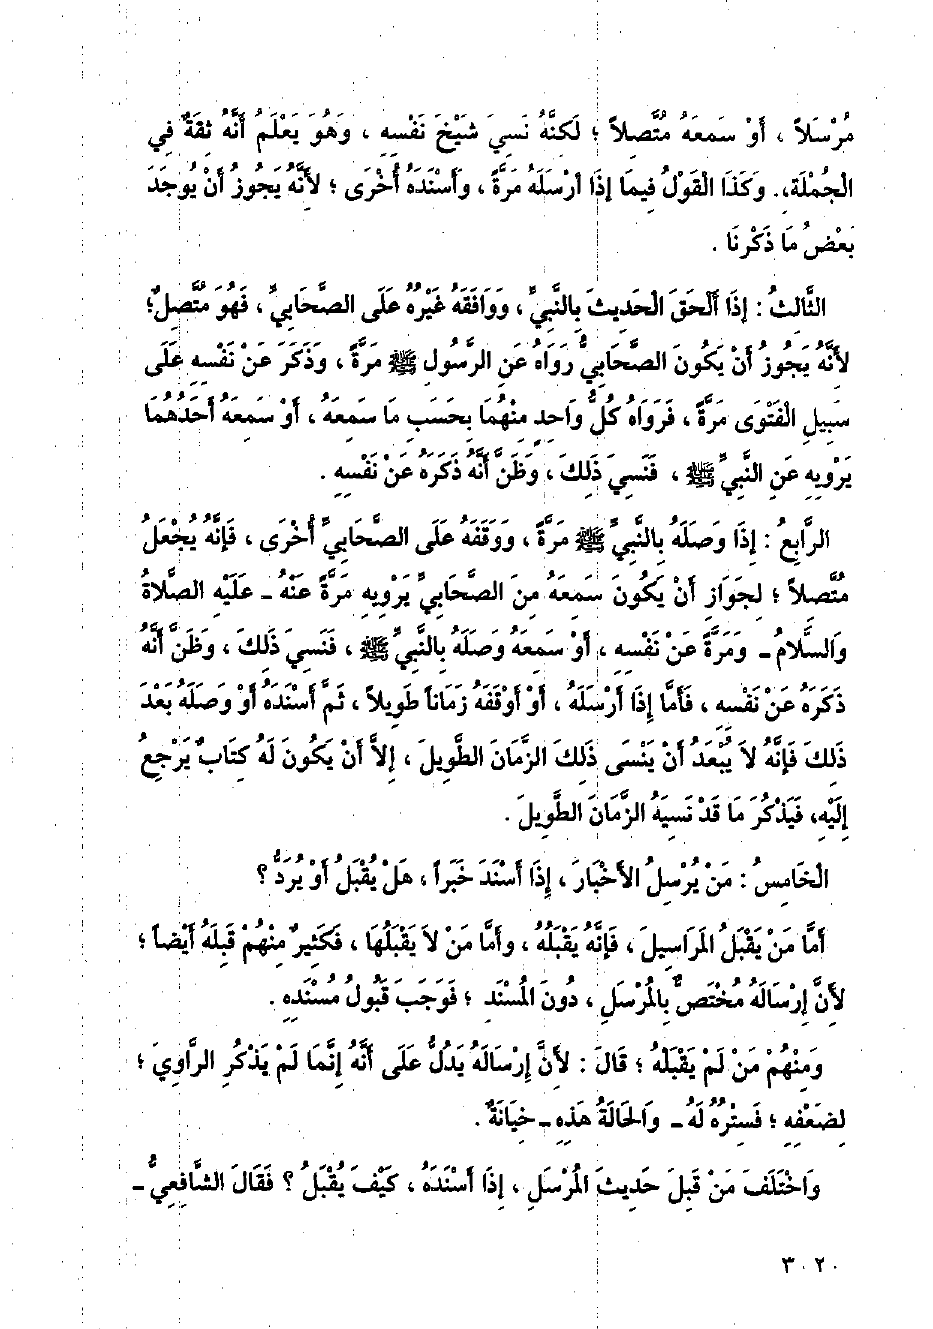 مُرْسَلاً ، أَوْ سَمِعَهُ مُتَّصِلاً ؛ لَكِنَّهُ نَسِيَ شَيْخَ نَفْسِهِ ، وَهُوَ يَعْلَمُ أَنَّهُ ثِقَةٌ فِي
الْجُمْلَةِ، وَكَذَا الْقَوْلُ فِيمَا إِذَا أَرْسَلَهُ مَرَّةً ، وَأَسْنَدَهُ أُخْرَى ؛ لأَنَّهُ يَجُوزُ أَنْ يُوجَدَ
بَعْضُ مَا ذَكَرْنَا .
الثَّالِثُ : إِذَا أَلْحَقَ الْحَدِيثَ بِالنَّبِيِّ ، وَوَافَقَهُ غَيْرُهُ عَلَى الصَّحَابِيِّ ، فَهُوَ مُتَّصِلٌ؛
لأَنَّهُ يَجُوزُ أَنْ يَكُونَ الصَّحَابِيُّ رَوَاهُ عَنِ الرَّسُولِ ﷺ مَرَّةً ، وَذَكَرَ عَنْ نَفْسِهِ عَلَى
سَبِيلِ الْفَتْوَى مَرَّةً ، فَرَوَاهُ كُلُّ وَاحِدٍ مِنْهُمَا بِحَسَبِ مَا سَمِعَهُ ، أَوْ سَمِعَهُ أَحَدُهُمَا
يَرْوِيهِ عَنِ النَّبِيِّ ﷺ ، فَنَسِيَ ذَلِكَ ، وَظَنَّ أَنَّهُ ذَكَرَهُ عَنْ نَفْسِهِ .
الرَّابِعُ : إِذَا وَصَلَهُ بِالنَّبِيِّ ﷺ مَرَّةً ، وَوَقَفَهُ عَلَى الصَّحَابِيِّ أُخْرَى ، فَإِنَّهُ يُجْعَلُ
مُتَّصِلاً ؛ لِجَوَازِ أَنْ يَكُونَ سَمِعَهُ مِنَ الصَّحَابِيِّ يَرْوِيهِ مَرَّةً عَنْهُ ـ عَلَيْهِ الصَّلاةُ
وَالسَّلامُ ـ وَمَرَّةً عَنْ نَفْسِهِ ، أَوْ سَمِعَهُ وَصَلَهُ بِالنَّبِيِّ ﷺ ، فَنَسِيَ ذَلِكَ ، وَظَنَّ أَنَّهُ
ذَكَرَهُ عَنْ نَفْسِهِ ، فَأَمَّا إِذَا أَرْسَلَهُ ، أَوْ أَوْقَفَهُ زَمَاناً طَوِيلاً ، ثُمَّ أَسْنَدَهُ أَوْ وَصَلَهُ بَعْدَ
ذَلِكَ فَإِنَّهُ لاَ يُبْعَدُ أَنْ يَنْسَى ذَلِكَ الزَّمَانَ الطَّوِيلَ ، إِلاَّ أَنْ يَكُونَ لَهُ كِتَابٌ يَرْجِعُ
إِلَيْهِ، فَيَذْكُرَ مَا قَدْ نَسِيَهُ الزَّمَانَ الطَّوِيلَ .
الْخَامِسُ : مَنْ يُرْسِلُ الأَخْبَارَ ، إِذَا أَسْنَدَ خَبَراً ، هَلْ يُقْبَلُ أَوْ يُرَدُّ ؟
أَمَّا مَنْ يَقْبَلُ الْمَرَاسِيلَ ، فَإِنَّهُ يَقْبَلُهُ ، وَأَمَّا مَنْ لاَ يَقْبَلُهَا ، فَكَثِيرٌ مِنْهُمْ قَبِلَهُ أَيْضاً ؛
لأَنَّ إِرْسَالَهُ مُخْتَصٌّ بِالْمُرْسَلِ ، دُونَ الْمُسْنَدِ ؛ فَوَجَبَ قَبُولُ مُسْنَدِهِ .
وَمِنْهُمْ مَنْ لَمْ يَقْبَلْهُ ؛ قَالَ : لأَنَّ إِرْسَالَهُ يَدُلُّ عَلَى أَنَّهُ إِنَّمَا لَمْ يَذْكُرِ الرَّاوِيَ ؛
لِضَعْفِهِ ؛ فَسَتْرُهُ لَهُ ـ وَالْحَالَةُ هَذِهِ ـ خِيَانَةٌ .
وَاخْتَلَفَ مَنْ قَبِلَ حَدِيثَ الْمُرْسِلِ ، إِذَا أَسْنَدَهُ ، كَيْفَ يُقْبَلُ ؟ فَقَالَ الشَّافِعِيُّ ـ
٣٠٢٠